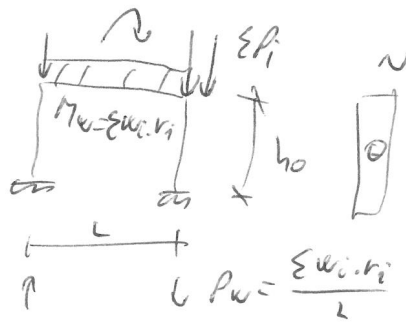 ΣPi
Mw=Σwi.ri
h0
θ
L
Pw = Σwi.ri / L